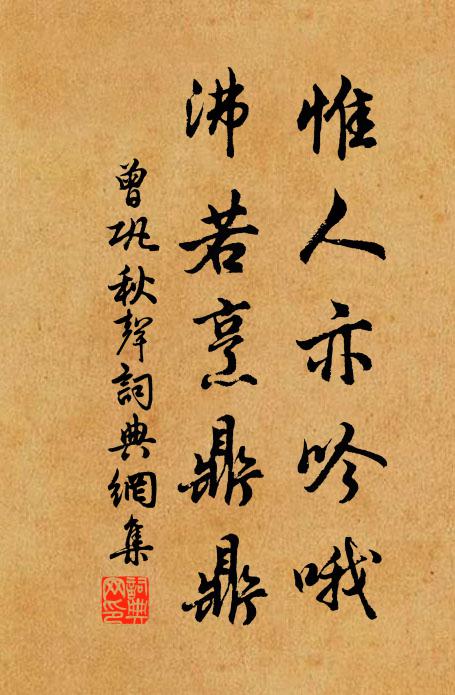 惟人亦吟哦
沸若烹鼎鼎
曾巩秋聲詞典網集
詞典網印